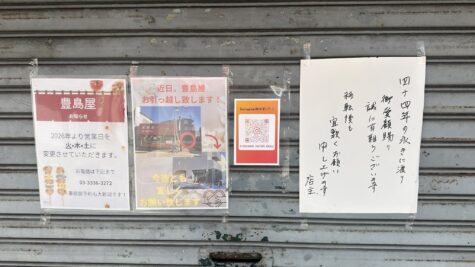 豊島屋
お知らせ
2026年より営業日を
火・木・土に
変更させていただきます。
お電話は下記まで
03-3336-3272
近日、豊島線
お引っ越し致します!
今後とも
宜しく
お願い致します
四十四年の永きに渡り
御愛顧賜り
誠に有難うございます
移転後も
宜敷くお願い
申し上げます
店主